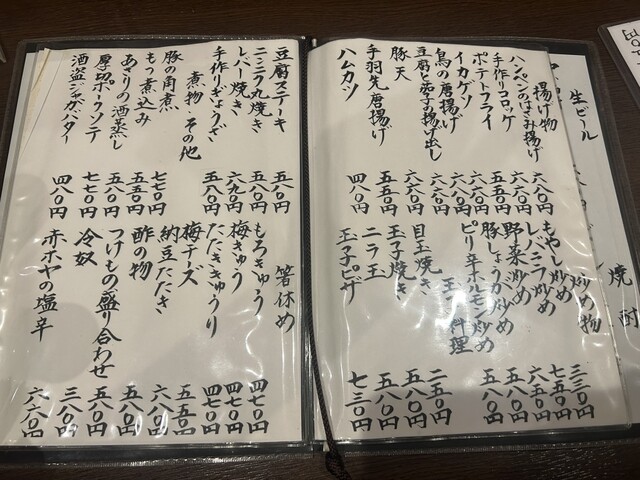 生ビール
焼酎
揚げ物
ハンペンのはさみ揚げ 六八〇円
手作りコロッケ 六六〇円
ポテトフライ 五五〇円
イカゲソ 六六〇円
鳥の唐揚げ 六六〇円
豆腐と茄子の揚げ出し 六六〇円
豚天 六六〇円
手羽先唐揚げ 五五〇円
ハムカツ 四八〇円
炒め物
もやし炒め 三三〇円
レバニラ炒め 七五〇円
野菜炒め 六五〇円
豚しょうが炒め 五八〇円
ピリ辛ホルモン炒め 五八〇円
玉子料理
目玉焼き 二五〇円
玉子焼き 五八〇円
ニラ玉 五八〇円
玉子ピザ 七三〇円
豆腐ステーキ 五八〇円
ニンニク丸焼き 五八〇円
レバー焼き 六九〇円
手作りぎょうざ 五八〇円
煮物 その他
豚の角煮 七七〇円
もつ煮込み 五五〇円
あさりの酒蒸し 五八〇円
厚切ポークソテー 七七〇円
酒盗ジャガバター 四八〇円
箸休め
もろきゅう 四七〇円
梅きゅう 四七〇円
たたききゅうり 四七〇円
梅チーズ 五五〇円
納豆たたき 六八〇円
酢の物 五八〇円
つけもの盛り合わせ 五八〇円
冷奴 三八〇円
赤ホヤの塩辛 六六〇円